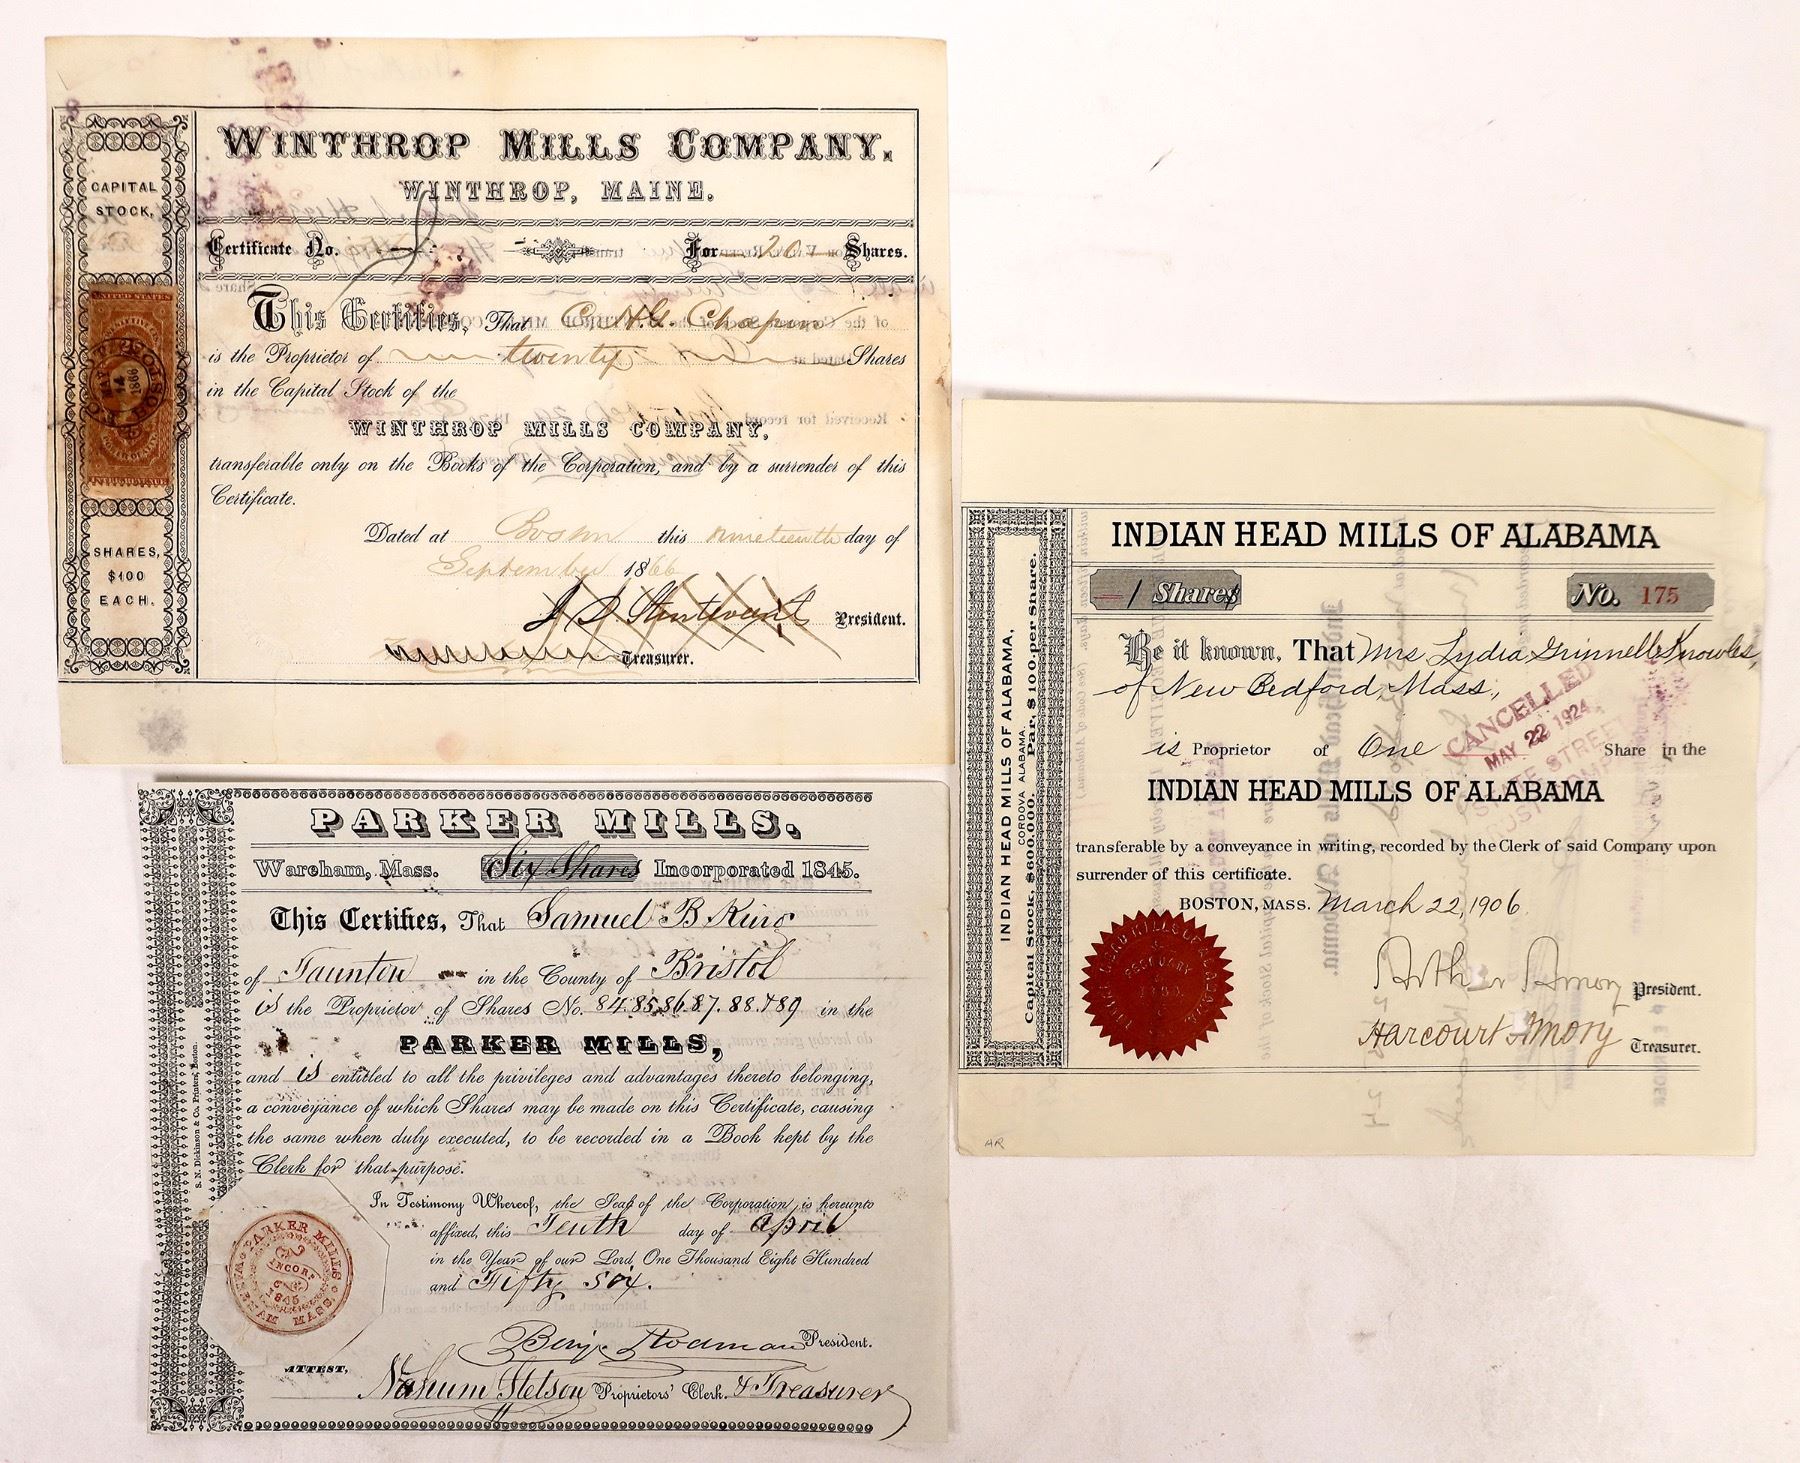 WINTHROP MILLS COMPANY.
WINTHROP, MAINE.
CAPITAL
STOCK,
Certificate No. For 20 Shares.
This Certifies, That C. H. G. Chapin
is the Proprietor of twenty Shares
in the Capital Stock of the
WINTHROP MILLS COMPANY,
transferable only on the Books of the Corporation, and by a surrender of this
Certificate.
Dated at Boston this nineteenth day of
September 1866
President.
Treasurer.
SHARES,
$100
EACH.
UNITED STATES
1866
BOSTON
INT. REVENUE
PARKER MILLS.
Wareham, Mass. Six Shares Incorporated 1845.
This Certifies, That Samuel B King
of Taunton in the County of Bristol
is the Proprietor of Shares No. 84.85.86.87.88.&89 in the
PARKER MILLS,
and is entitled to all the privileges and advantages thereto belonging,
a conveyance of which Shares may be made on this Certificate, causing
the same when duly executed, to be recorded in a Book kept by the
Clerk for that purpose.
In Testimony Whereof, the Seal of the Corporation is hereunto
affixed, this Tenth day of April
in the Year of our Lord, One Thousand Eight Hundred
and Fifty six.
Benj. Rodman President.
ATTEST,
Nahum Stetson Proprietors' Clerk. & Treasurer
S. N. Dickinson & Co. Printers, Boston
PARKER MILLS
INCORP.
1845
WAREHAM MASS.
INDIAN HEAD MILLS OF ALABAMA
1 Shares No. 175
Be it known, That Mrs Lydia Grinnell Knowles,
of New Bedford Mass,
is Proprietor of One Share in the
INDIAN HEAD MILLS OF ALABAMA
transferable by a conveyance in writing, recorded by the Clerk of said Company upon
surrender of this certificate.
BOSTON, MASS. March 22, 1906.
Arthur Amory President.
Harcourt Amory Treasurer.
CANCELLED
MAY 22 1924
STATE STREET
INDIAN HEAD MILLS OF ALABAMA,
CORDOVA, ALABAMA.
Capital Stock, $600,000. Par, $100 per Share.
INDIAN HEAD MILLS OF ALABAMA
AR